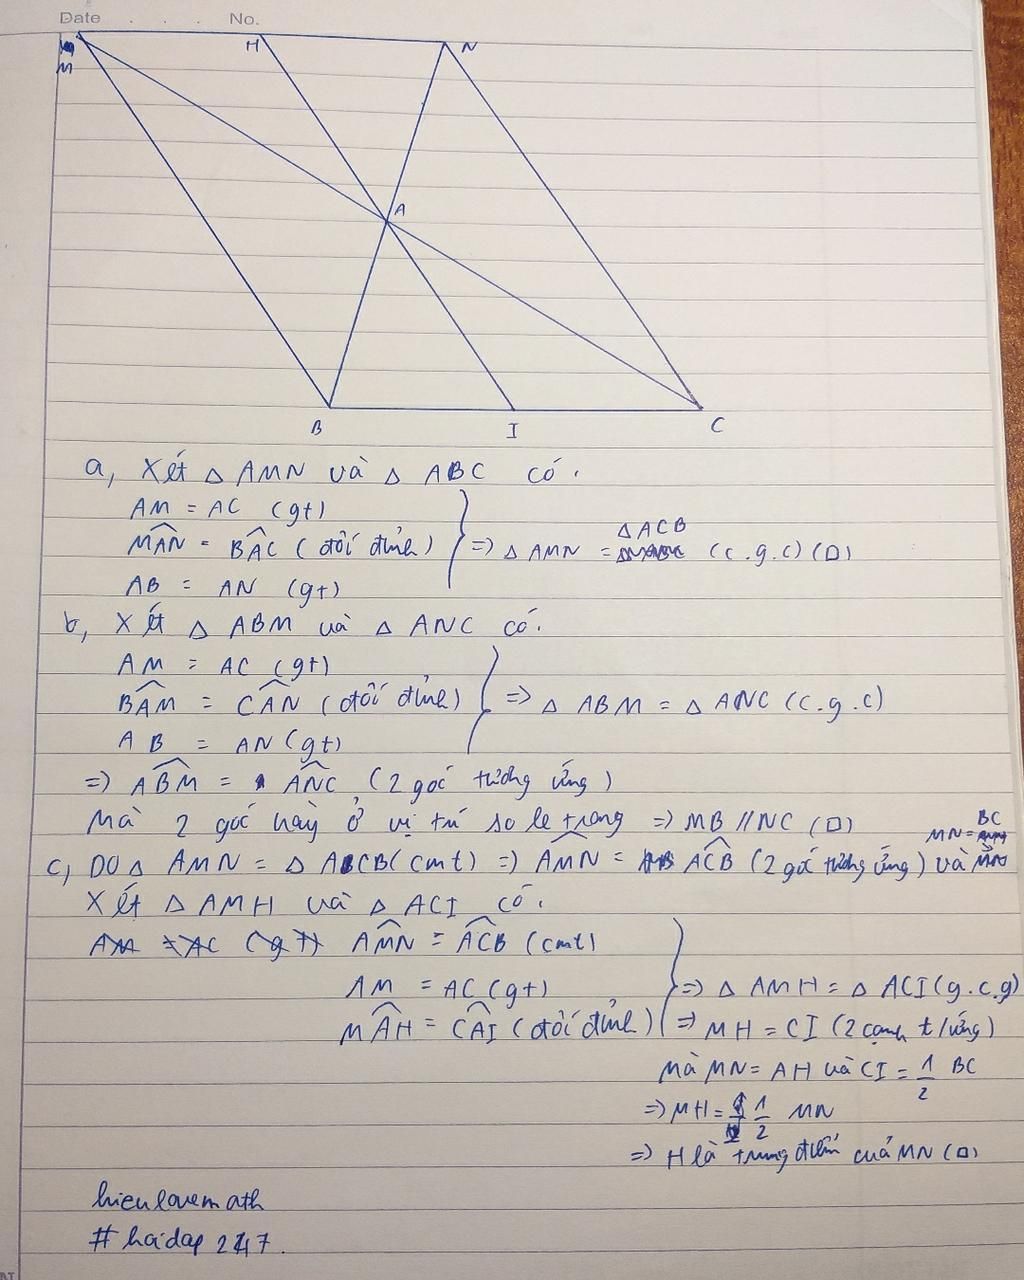 Date . . . No.
M
H
N
A
B
I
C
a, Xét △ AMN và △ ABC có.
AM = AC (gt)
MAN = BAC (đối đỉnh)
AB = AN (gt)
=> △ AMN = △ACB (c.g.c) (□)
b, Xét △ ABM và △ ANC có.
AM = AC (gt)
BAM = CAN (đối đỉnh)
AB = AN (gt)
=> △ ABM = △ ANC (c.g.c)
=> ABM = ANC (2 góc tương ứng)
Mà 2 góc này ở vị trí so le trong => MB // NC (□)
c, Do △ AMN = △ ACB (cmt) => AMN = ACB (2 góc tương ứng) và MN = BC
Xét △ AMH và △ ACI có.
AM = AC (gt) AMN = ACB (cmt)
AM = AC (gt)
MAH = CAI (đối đỉnh)
=> △ AMH = △ ACI (g.c.g)
=> MH = CI (2 cạnh t/ứng)
Mà MN = AH và CI = 1/2 BC
=> MH = 1/2 MN
=> H là trung điểm của MN (□)
hieulovemath
# hoidap 247.